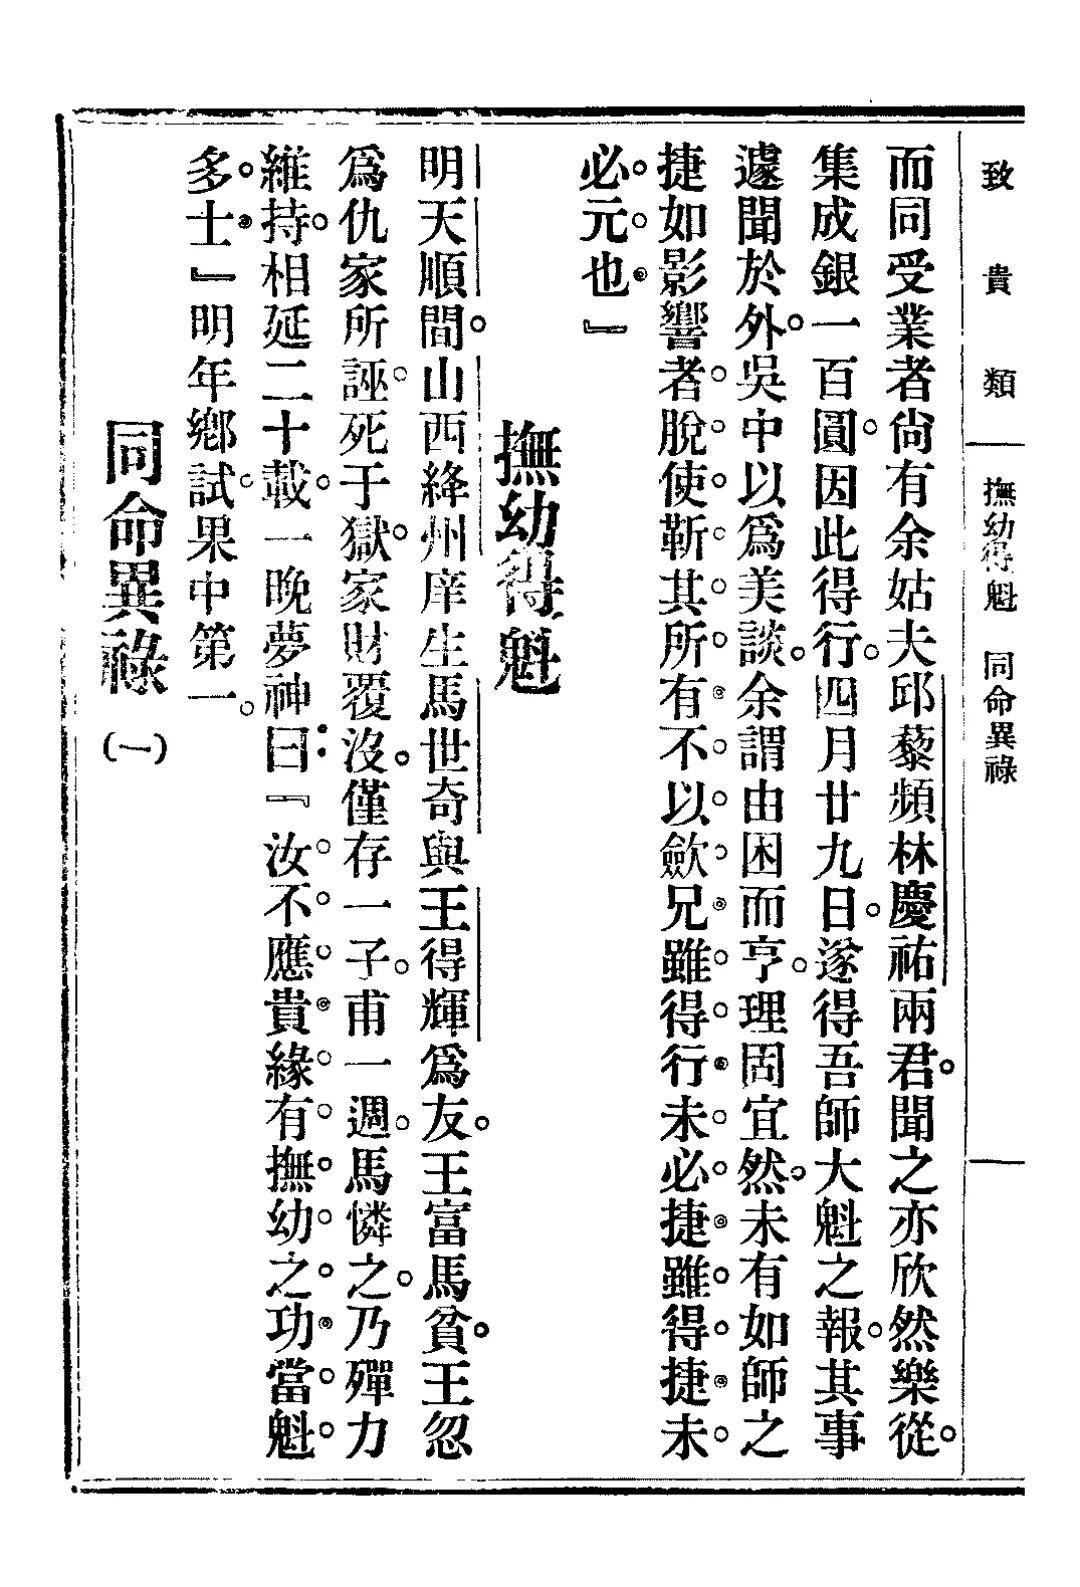 致貴類 撫幼得魁 同命異祿 一
而同受業者尙有余姑夫邱藜頻林慶祐兩君。聞之亦欣然樂從。
集成銀一百圓。因此得行。四月廿九日。遂得吾師大魁之報。其事
遽聞於外。吳中以爲美談。余謂由困而亨。理固宜然。未有如師之
捷如影響者。脫使靳其所有不以斂兄。雖得行未必捷。雖得捷未
必元也。』
撫幼得魁
明天順間。山西絳州庠生馬世奇與王得輝爲友。王富馬貧。王忽
爲仇家所誣。死于獄。家財覆沒。僅存一子。甫一週。馬憐之。乃殫力
維持。相延二十載。一晚夢神曰：『汝不應貴。緣有撫幼之功。當魁
多士。』明年鄉試。果中第一。
同命異祿（一）